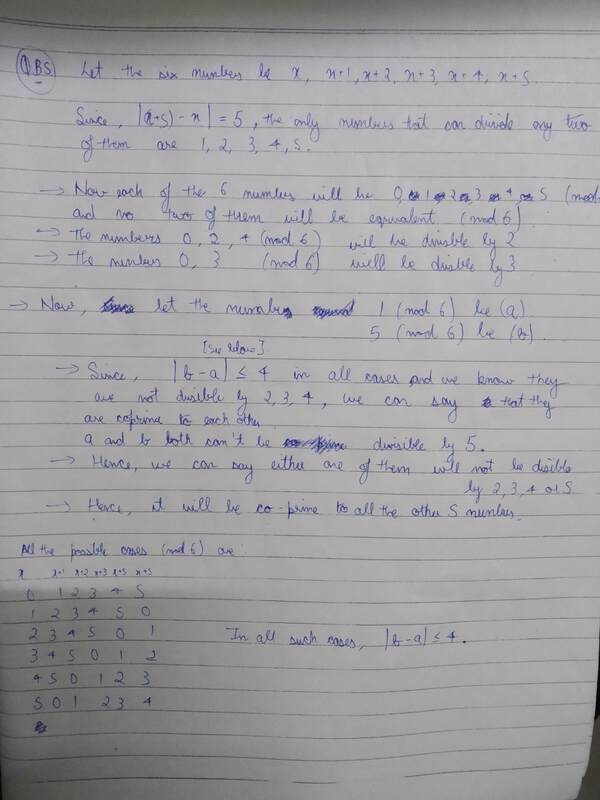 QB5) Let the six numbers be x, x+1, x+2, x+3, x+4, x+5
Since, |(x+5) - x| = 5, the only numbers that can divide any two
of them are 1, 2, 3, 4, 5.
→ Now each of the 6 numbers will be 0, 1, 2, 3, 4, 5 (mod
and no two of them will be equivalent (mod 6)
→ The numbers 0, 2, 4 (mod 6) will be divisible by 2
→ The numbers 0, 3 (mod 6) will be divisble by 3
→ Now, let the numbers 1 (mod 6) be (a)
5 (mod 6) be (b)
[See below]
→ Since, |b-a| ≤ 4 in all cases and we know they
are not divisible by 2, 3, 4, we can say that they
are coprime to each other
a and b both can't be divisible by 5.
→ Hence, we can say either one of them will not be disible
by 2, 3, 4 or 5.
→ Hence, it will be co-prime to all the other 5 numbers.
All the possible cases (mod 6) are:
x x+1 x+2 x+3 x+5 x+5
0 1 2 3 4 5
1 2 3 4 5 0
2 3 4 5 0 1
In all such cases, |b-a| ≤ 4.
3 4 5 0 1 2
4 5 0 1 2 3
5 0 1 2 3 4